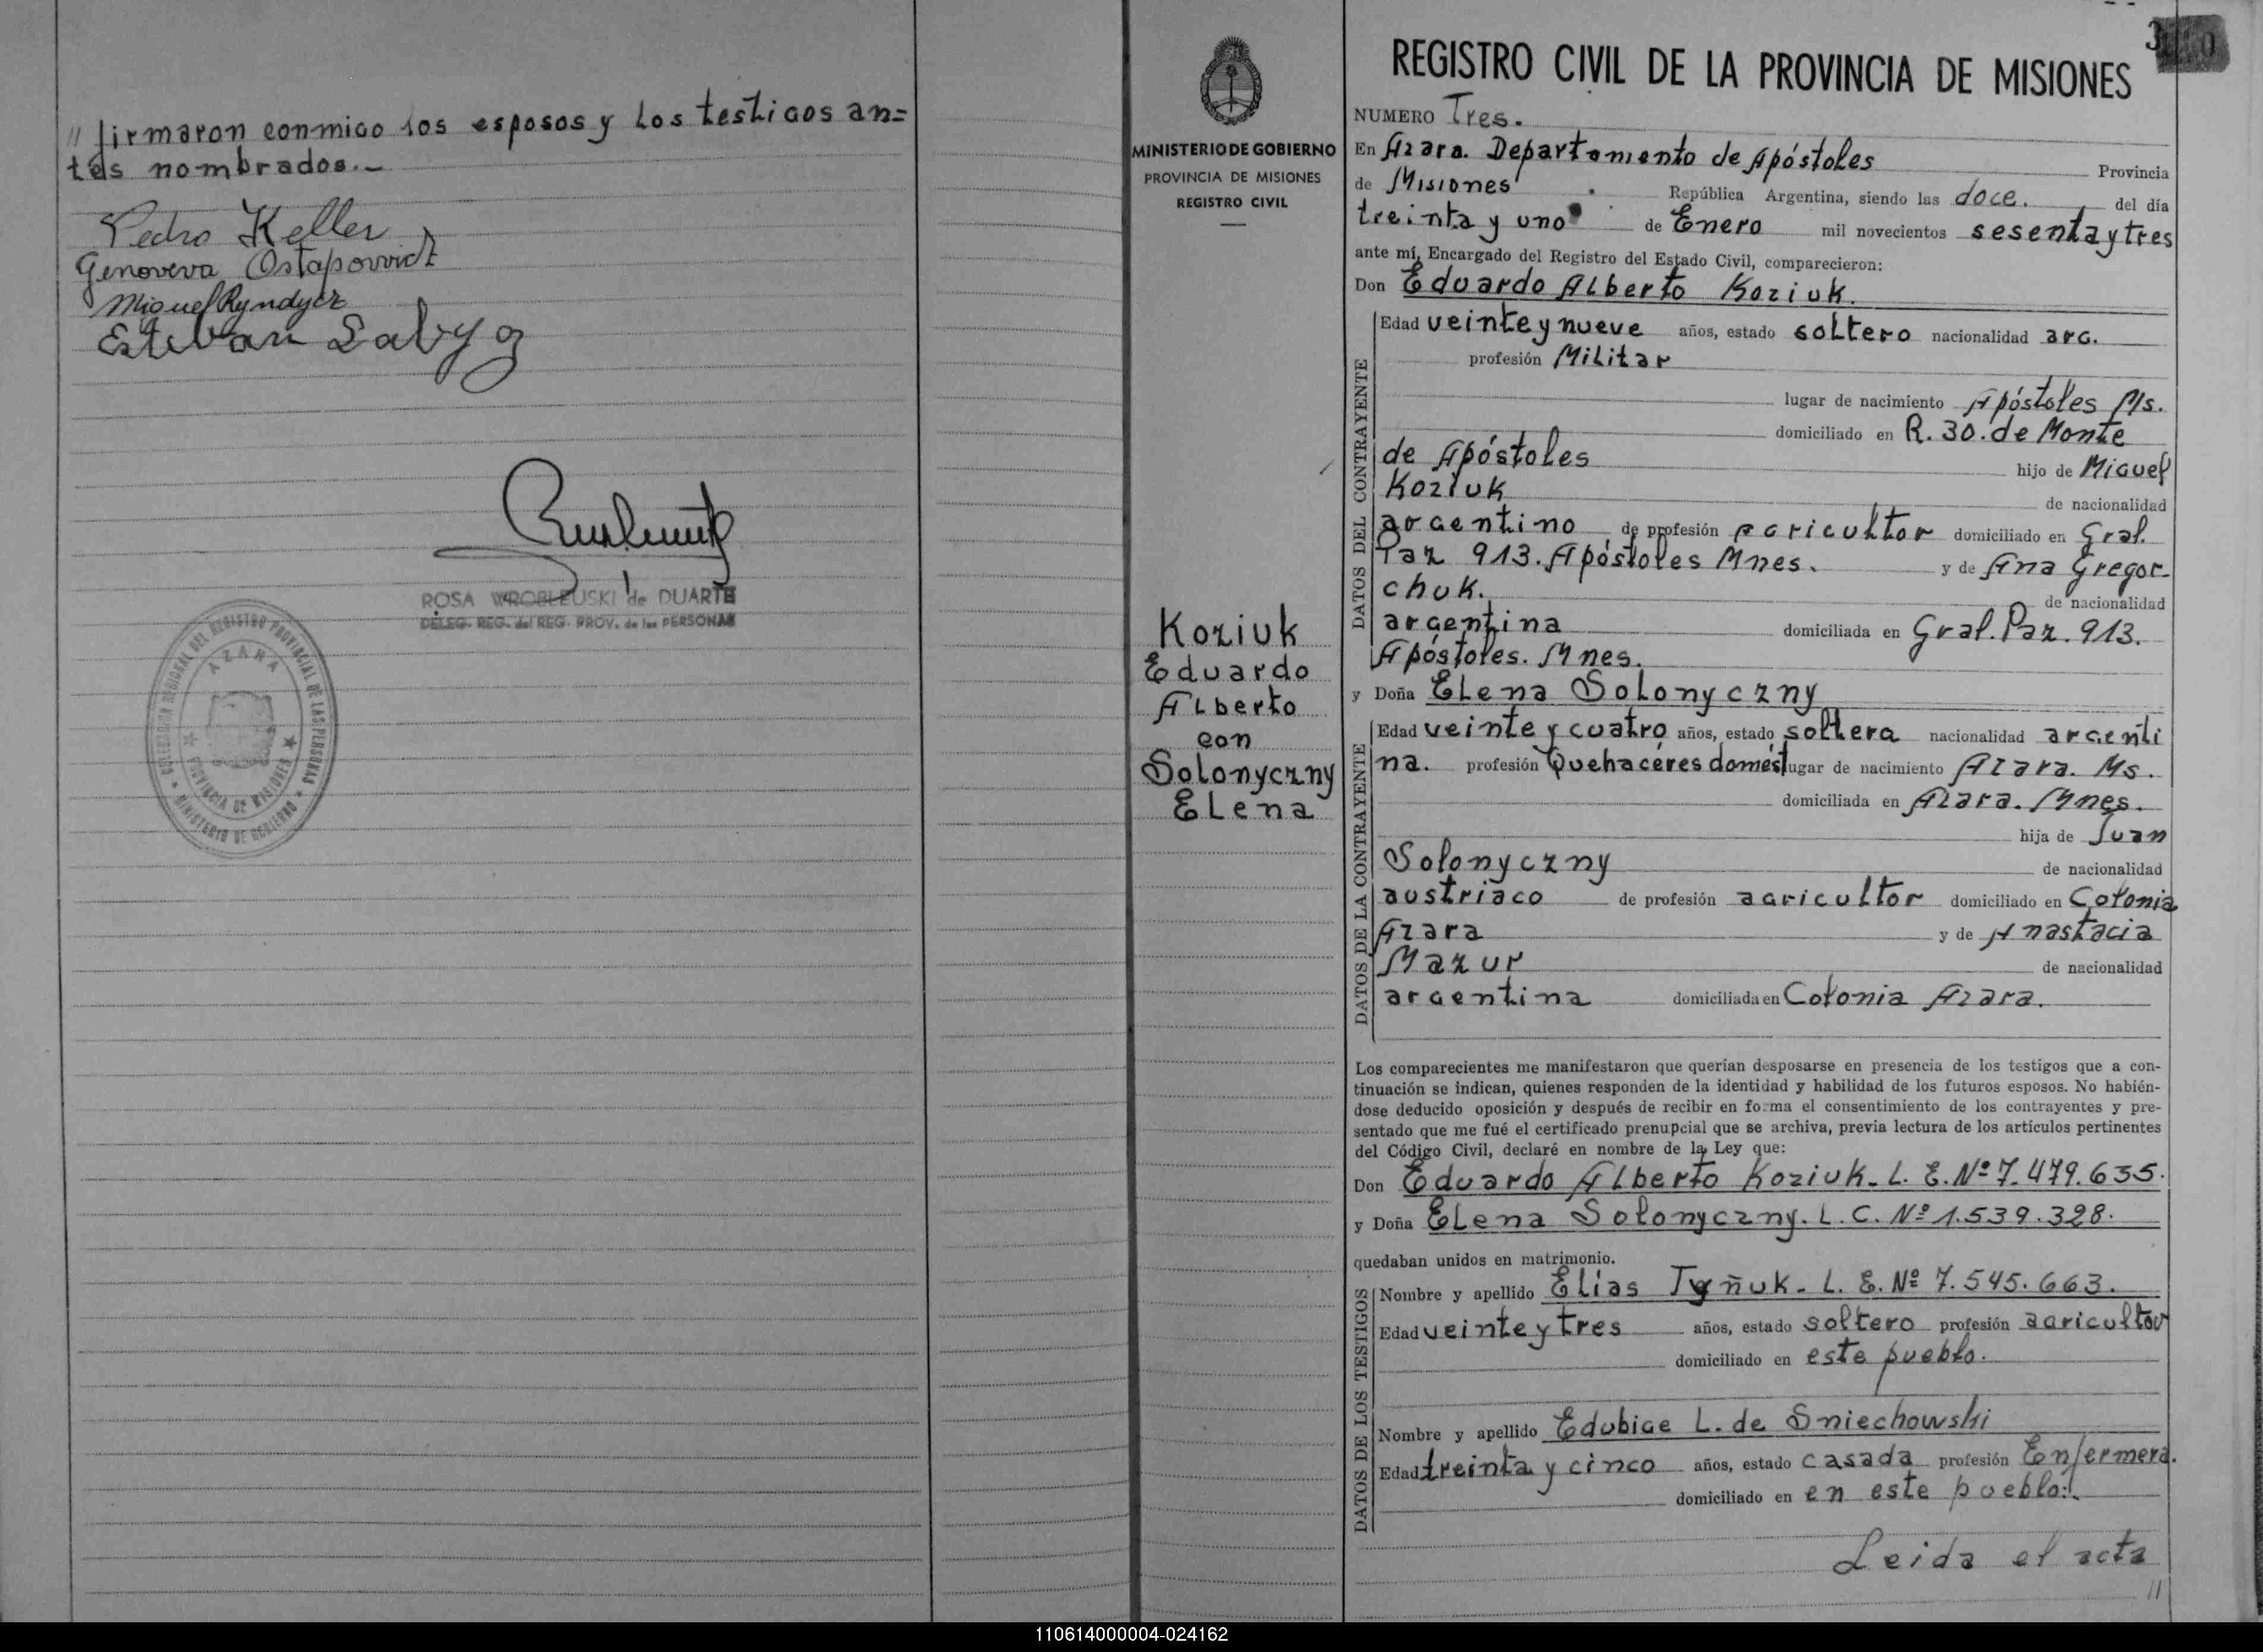 // firmaron conmigo los esposos y los testigos an=
tes nombrados.-
Pedro Keller
Genoveva Ostapovvich
Miguel Ryndycz
Estevan
ROSA WROBLEUSKI de DUARTE
DELEG. REG. del REG. PROV. de las PERSONAS
DELEGACION REGIONAL DEL REGISTRO PROVINCIAL DE LAS PERSONAS
AZARA
PROVINCIA DE MISIONES
MINISTERIO DE GOBIERNO
MINISTERIO DE GOBIERNO
PROVINCIA DE MISIONES
REGISTRO CIVIL
Koziuk
Eduardo
Alberto
con
Solonyczny
Elena
3
REGISTRO CIVIL DE LA PROVINCIA DE MISIONES
NUMERO Tres.
En Azara. Departamento de Apóstoles Provincia
de Misiones República Argentina, siendo las doce. del día
treinta y uno de Enero mil novecientos sesenta y tres
ante mí, Encargado del Registro del Estado Civil, comparecieron:
Don Eduardo Alberto Koziuk.
DATOS DEL CONTRAYENTE
Edad veinte y nueve años, estado soltero nacionalidad arg.
profesión Militar
lugar de nacimiento Apóstoles Ms.
domiciliado en R. 30. de Monte
de Apóstoles hijo de Miguel
Koziuk de nacionalidad
argentino de profesión agricultor domiciliado en Gral.
Paz 913. Apóstoles Mnes. y de Ana Gregor-
chuk. de nacionalidad
argentina domiciliada en Gral. Paz. 913.
Apóstoles. Mnes.
y Doña Elena Solonyczny
DATOS DE LA CONTRAYENTE
Edad veinte y cuatro años, estado soltera nacionalidad argenti
na. profesión Quehaceres domést lugar de nacimiento Azara. Ms.
domiciliada en Azara. Mnes.
hija de Juan
Solonyczny de nacionalidad
austriaco de profesión agricultor domiciliado en Colonia
Azara y de Anastacia
Mazur de nacionalidad
argentina domiciliada en Colonia Azara.
Los comparecientes me manifestaron que querían desposarse en presencia de los testigos que a con-
tinuación se indican, quienes responden de la identidad y habilidad de los futuros esposos. No habién-
dose deducido oposición y después de recibir en forma el consentimiento de los contrayentes y pre-
sentado que me fué el certificado prenupcial que se archiva, previa lectura de los artículos pertinentes
del Código Civil, declaré en nombre de la Ley que:
Don Eduardo Alberto Koziuk. L. E. Nº 7.479.635.
y Doña Elena Solonyczny. L. C. Nº 1.539.328.
quedaban unidos en matrimonio.
DATOS DE LOS TESTIGOS
Nombre y apellido Elías Tyñuk. L. E. Nº 7.545.663.
Edad veinte y tres años, estado soltero profesión agricultor
domiciliado en este pueblo.
Nombre y apellido Edubige L. de Sniechowski
Edad treinta y cinco años, estado casada profesión Enfermera.
domiciliado en en este pueblo:.
Leida el acta
//
110614000004-024162